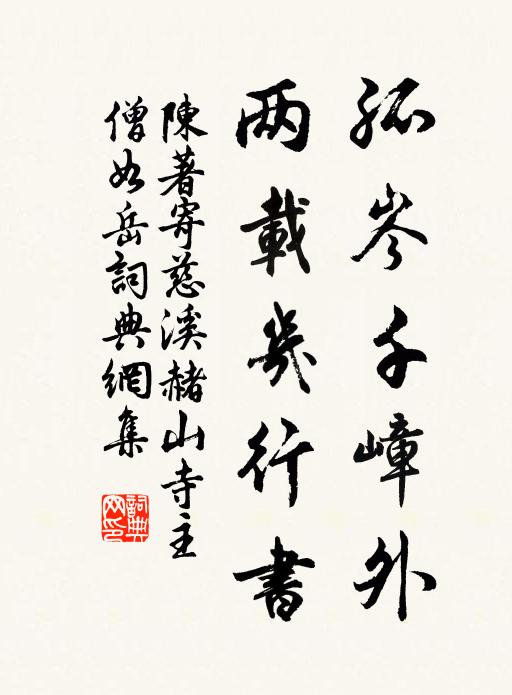 孤岑千嶂外
两載幾行書
陳著寄慈溪赭山寺主
僧如岳詞典網集
詞典网印